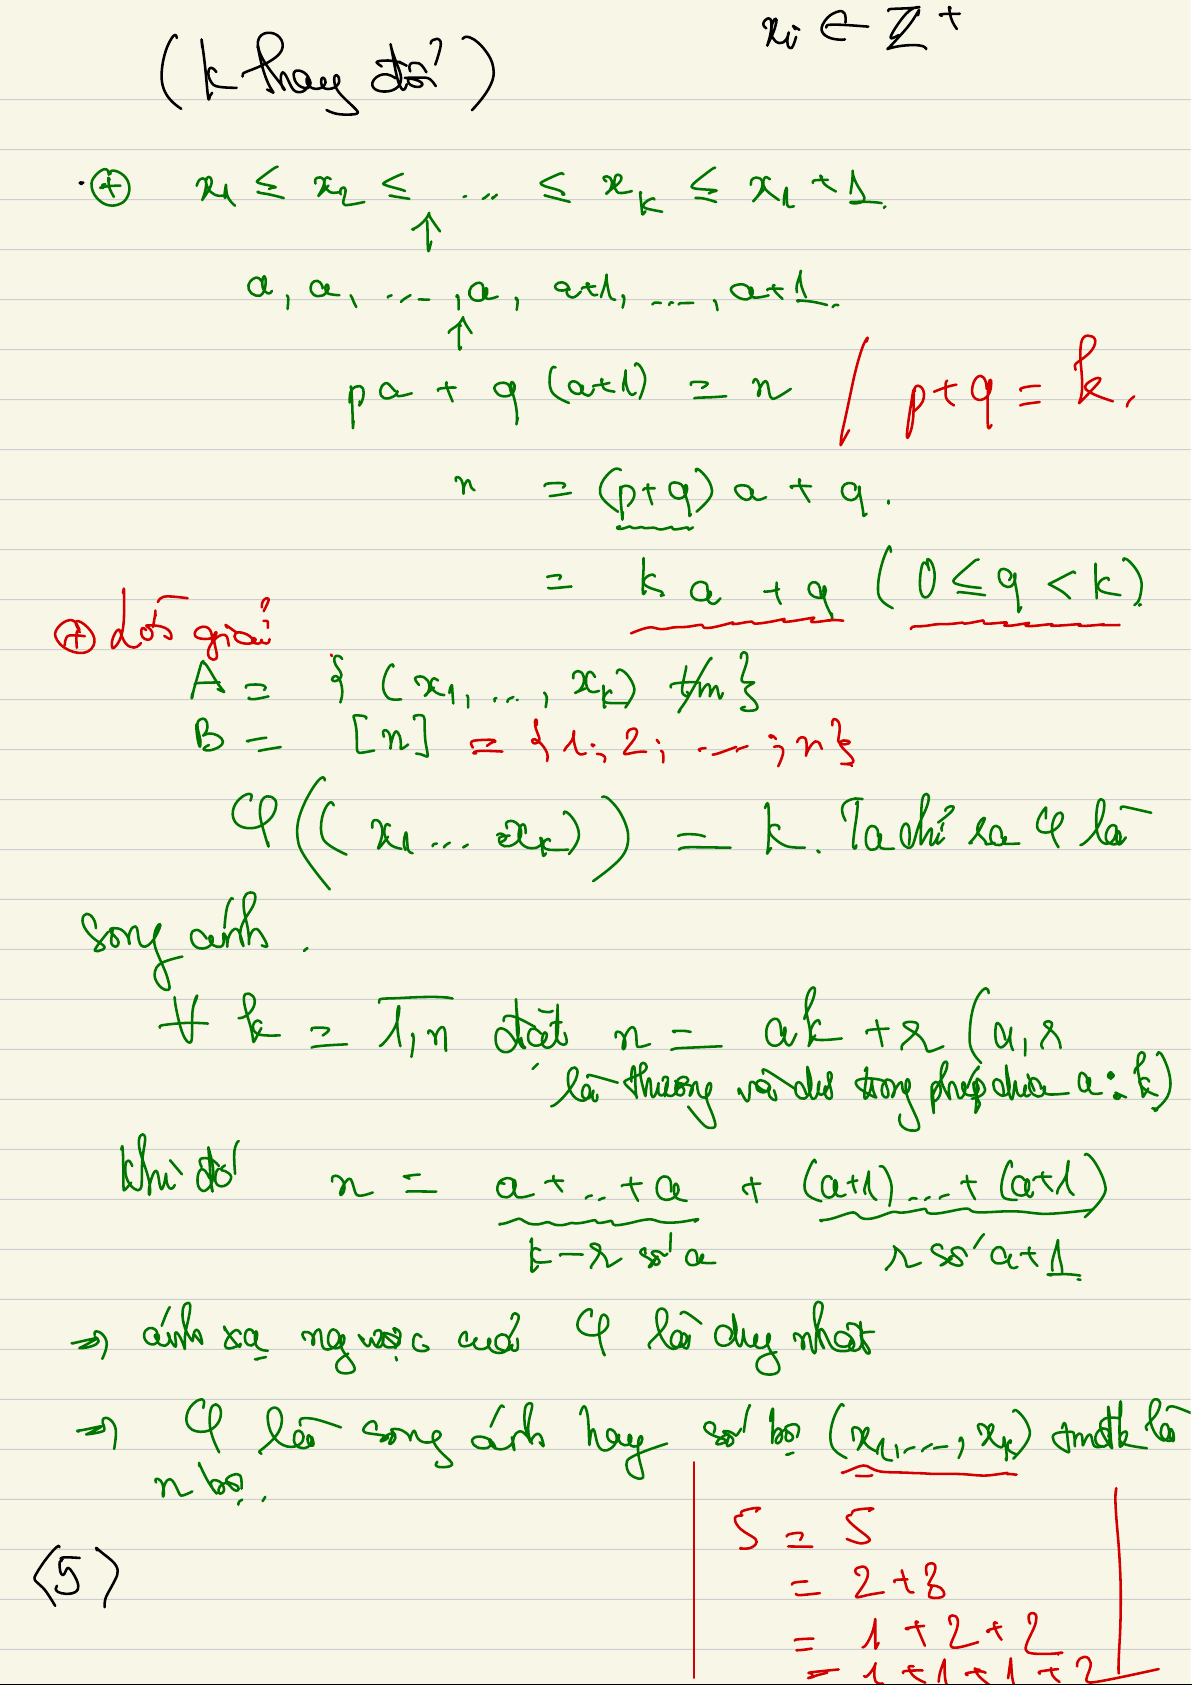 xᵢ ∈ ℤ⁺
(k thay đổi)
⊕ x₁ ≤ x₂ ≤ ... ≤ x_k ≤ x₁ + 1.
↑
a, a, ..., a, a+1, ..., a+1.
↑
pa + q(a+1) = n / p+q = k.
n = (p+q)a + q.
= ka + q (0 ≤ q < k)
⊕ Lời giải
A = { (x₁, ..., x_k) t/m }
B = [n] = {1; 2; ...; n}
φ((x₁ ... x_k)) = k. Ta chỉ ra φ là
song ánh.
∀ k = 1,n đặt n = ak + r (a, r
là thương và dư trong phép chia a : k)
khi đó n = a + .. + a + (a+1) ... + (a+1)
k-r số a r số a+1
⇒ ánh xạ ngược của φ là duy nhất
⇒ φ là song ánh hay số bộ (x₁, ..., x_k) tmđk là
n bộ.
5 = 5
(5)
= 2+3
= 1+2+2
= 1+1+1+2